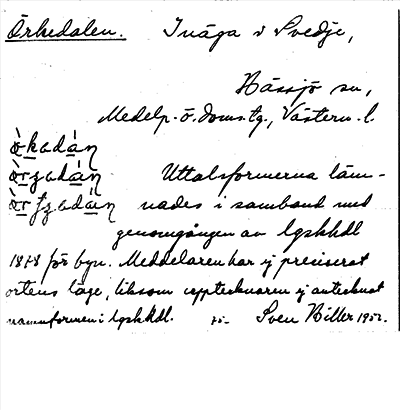 Örkedalen. Inäga i Svedje,
Hässjö sn,
Medelp. ö. doms.tg, Västern. l.
ö̀kadáɳ
ö̀rʒadáɳ Uttalsformerna läm-
ö̀rʈʒadáɳ nades i samband med
genomgången av lgskhdl
1858 för byn. Meddelaren har ej preciserat
ortens läge, liksom upptecknaren ej antecknat
namnformen i lgskhdl. Sven Biller 1952.